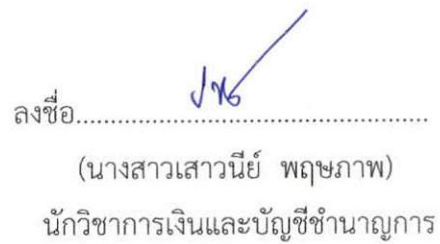 ลงชื่อ................................................
(นางสาวเสาวนีย์ พฤษภาพ)
นักวิชาการเงินและบัญชีชำนาญการ